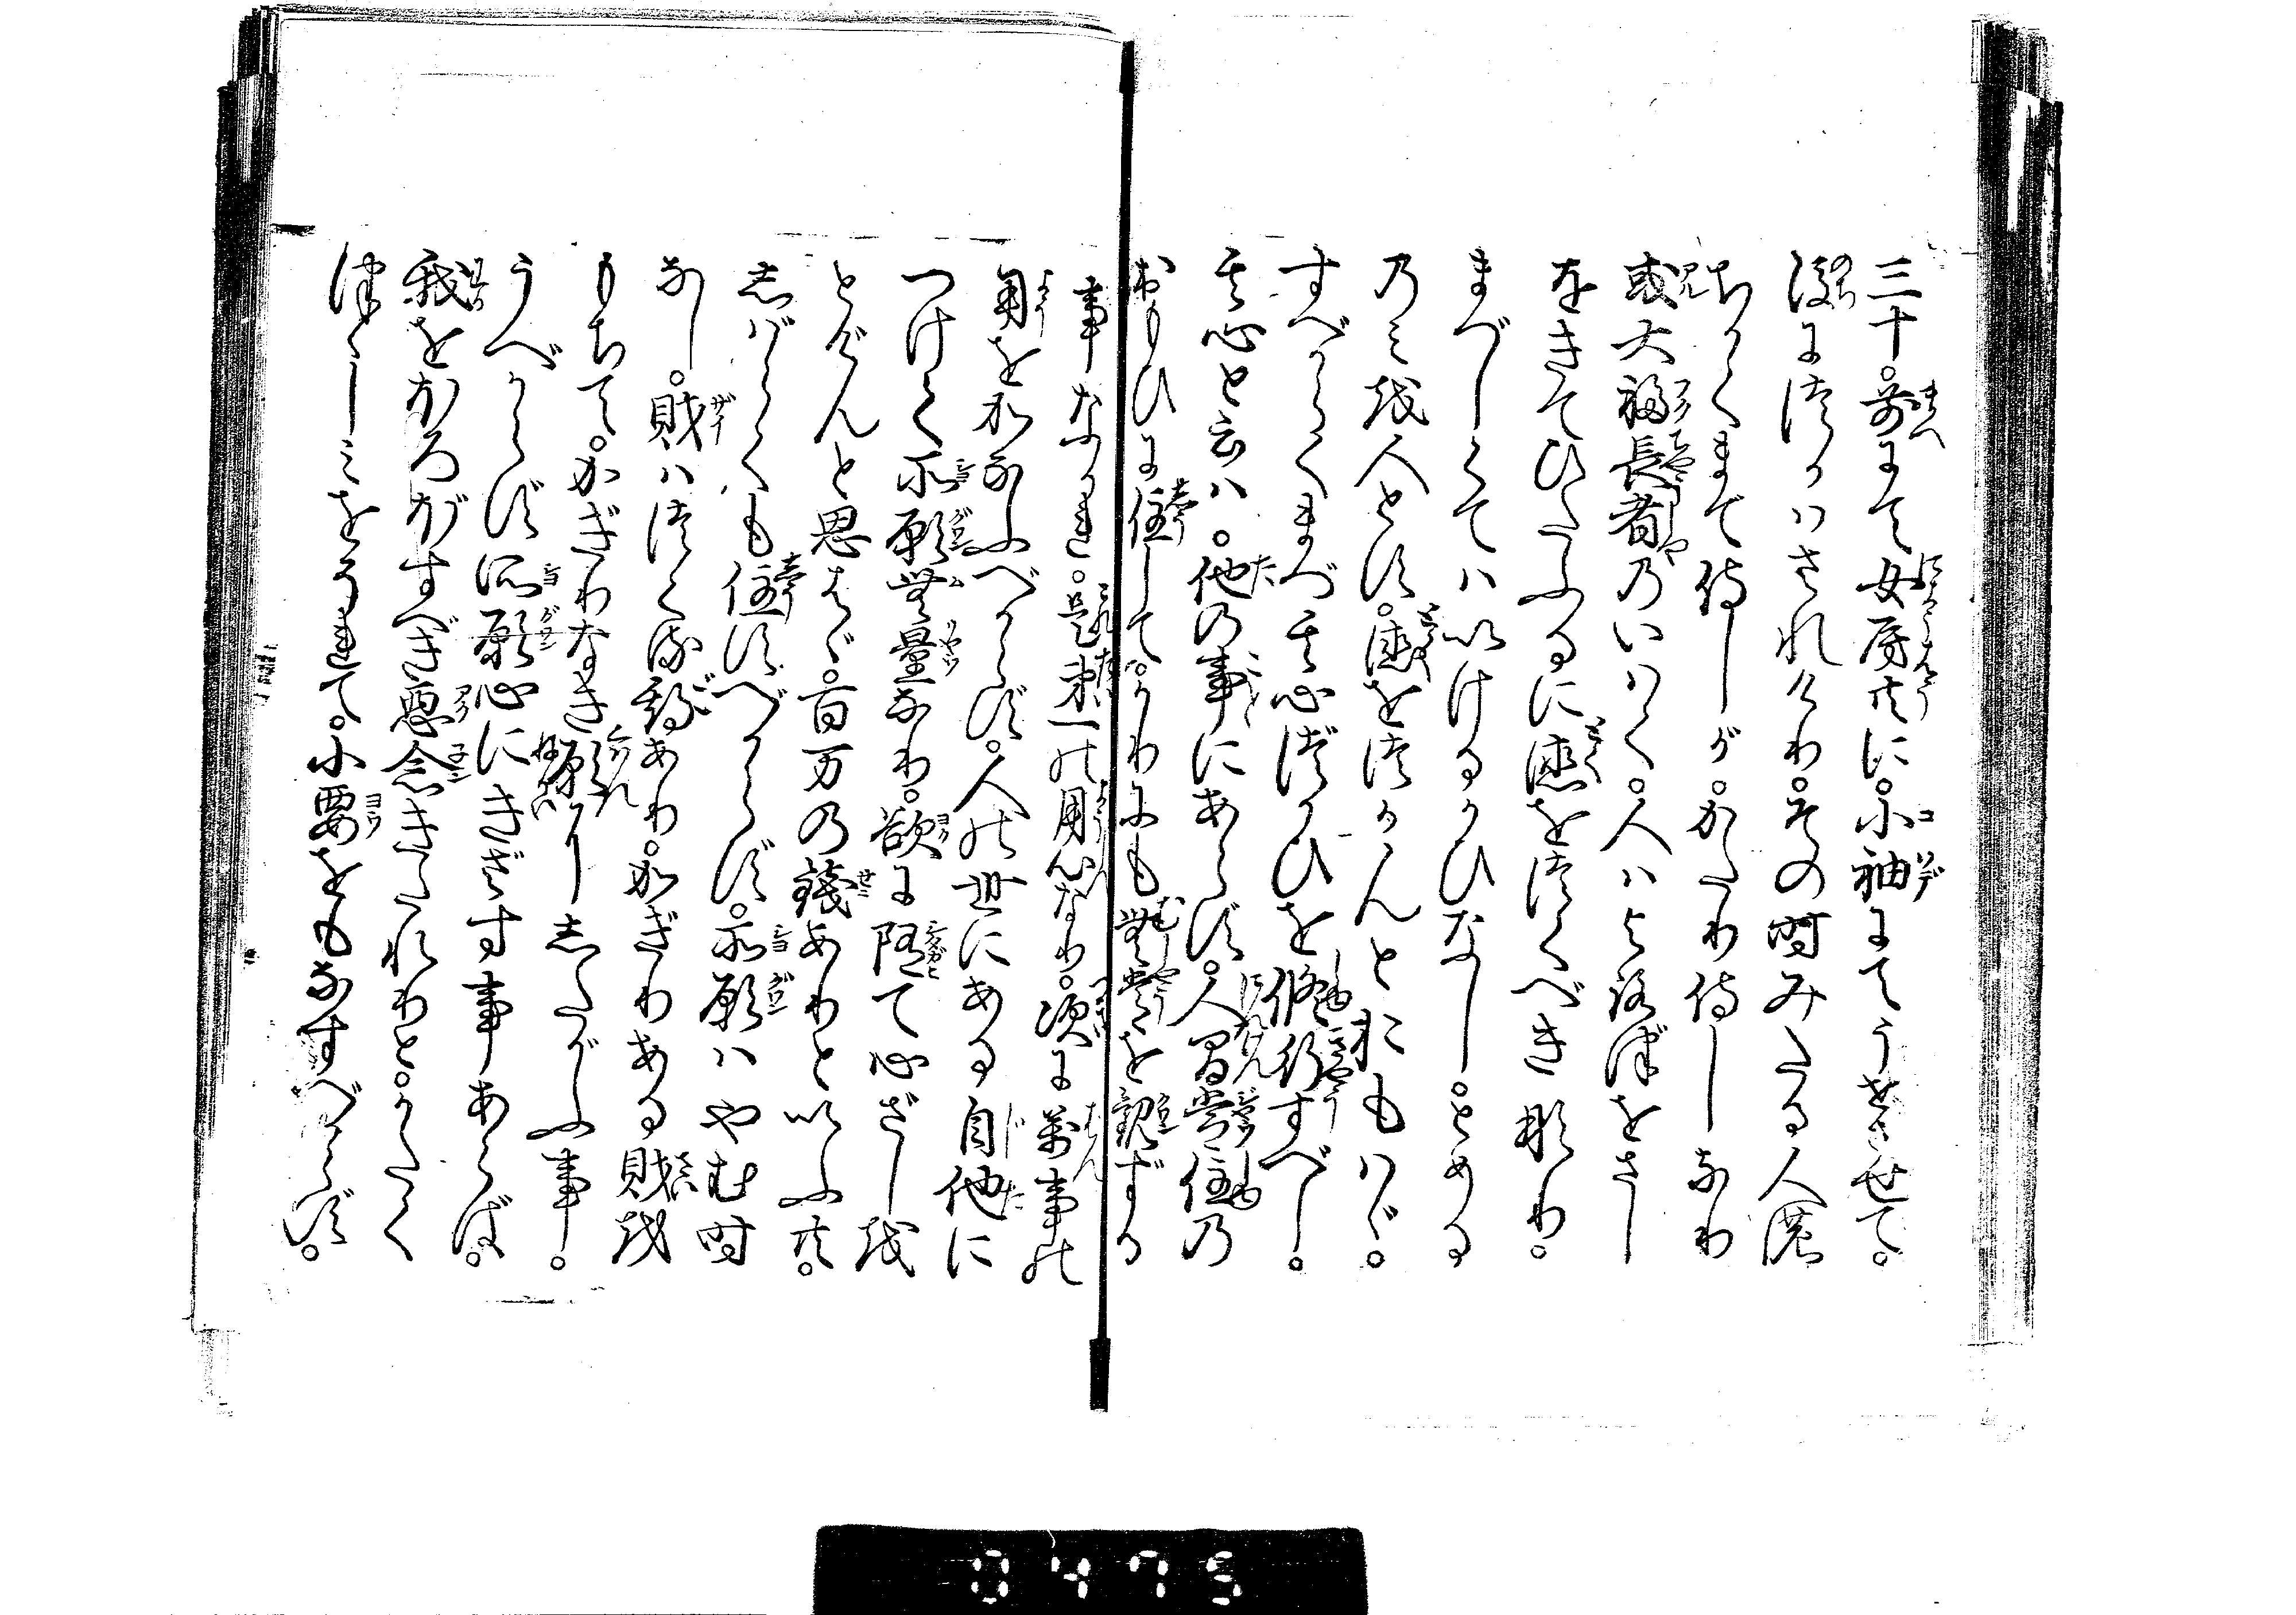 三十。前にて女房共に。小袖にてうせさせて。
後につかハされけり。その時みたる人の
ちかくまで侍しが。かたり侍しなり
或大福長者のいはく。人ハよろづをさし
をきてひたふるに徳をつくべき也。
まづしくてハいけるかひなし。とめる
のミを人とす。徳をつかんとおもハヾ。
すべからくまづ其心づかひを修行すべし。
其心と云ハ。他の事にあらず。人間常住の
おもひに住して。かりにも無常を観ずる
事なかれ。是第一の用心なり。次に萬事の
用をかなふべからず。人の世にある自他に
つけて所願無量なり。欲に随て心ざしを
とげんと思ハヾ。百万の錢ありといふ共。
しばらくも住すべからず。所願ハやむ時
なし。財ハつくる期あり。かぎりある財を
もちて。かぎりなき願にしたがふ事。
うべからず。所願心にきざす事あらば。
我をほろぼすべき悪念きたれりと。かたく
つゝしミをそれて。小要をもなすべからず。
3473